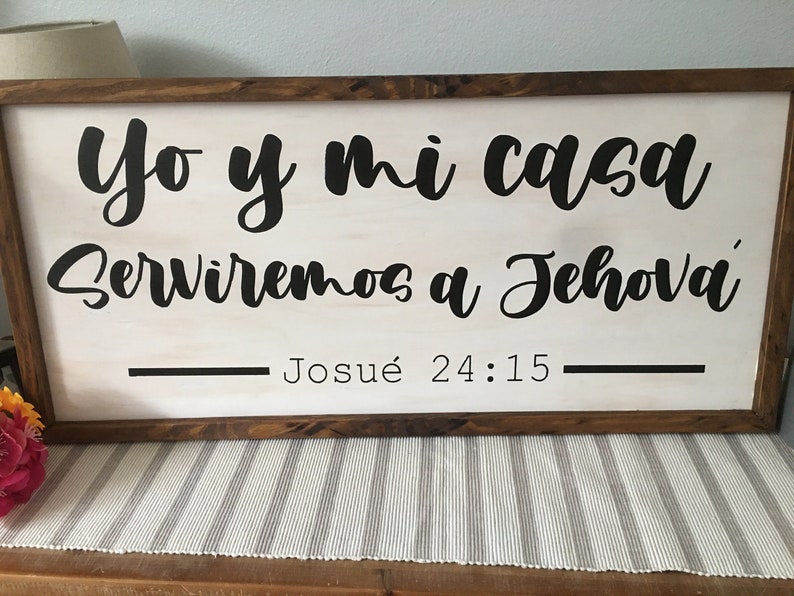 Yo y mi casa
Serviremos a Jehová
Josué 24:15